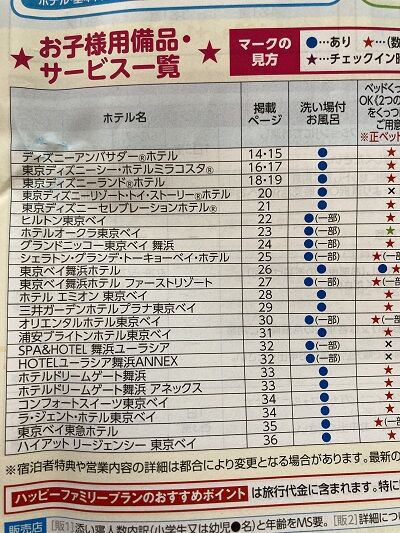 ★ お子様用備品・サービス一覧 ★
マークの見方 ●…あり ★…(数
★…チェックイン時
ホテル名 掲載ページ 洗い場付お風呂 ベッドくっ
OK(2つの
をくっつ
ご用意
※正ベッ
ディズニーアンバサダー®ホテル 14・15 ● ★
東京ディズニーシー・ホテルミラコスタ® 16・17 ● ★
東京ディズニーランド®ホテル 18・19 ● ★
東京ディズニーリゾート・トイ・ストーリー®ホテル 20 ● ×
東京ディズニーセレブレーションホテル® 21 ● ★
ヒルトン東京ベイ 22 ●(一部) ★
ホテルオークラ東京ベイ 23 ●(一部) ★
グランドニッコー東京ベイ 舞浜 24 ●(一部) ★
シェラトン・グランデ・トーキョーベイ・ホテル 25 ●(一部) ★(一部
東京ベイ舞浜ホテル 26 ● ●★
東京ベイ舞浜ホテル ファーストリゾート 27 ●(一部) ★(一部
ホテル エミオン 東京ベイ 28 ● ★
三井ガーデンホテルプラナ東京ベイ 29 ● ★
オリエンタルホテル東京ベイ 30 ●(一部) ★(一部
浦安ブライトンホテル東京ベイ 31 ● ★
SPA&HOTEL 舞浜ユーラシア 32 ●(一部) ×
HOTELユーラシア舞浜ANNEX 32 ●(一部) ×
ホテルドリームゲート舞浜 33 ● ★
ホテルドリームゲート舞浜 アネックス 33 ● ★
コンフォートスイーツ東京ベイ 34 ● ★
ラ・ジェント・ホテル東京ベイ 34 ● ★
東京ベイ東急ホテル 35 ● ★(一
ハイアット リージェンシー 東京ベイ 36 ● ★
※宿泊者特典や営業内容の詳細は都合により変更となる場合があります。最新の
ハッピーファミリープランのおすすめポイント は旅行代金に含まれます。特に
販売店 [販1] 添い寝人数内訳(小学生又は幼児●名)と年齢をMS要。[販2] 詳細につ